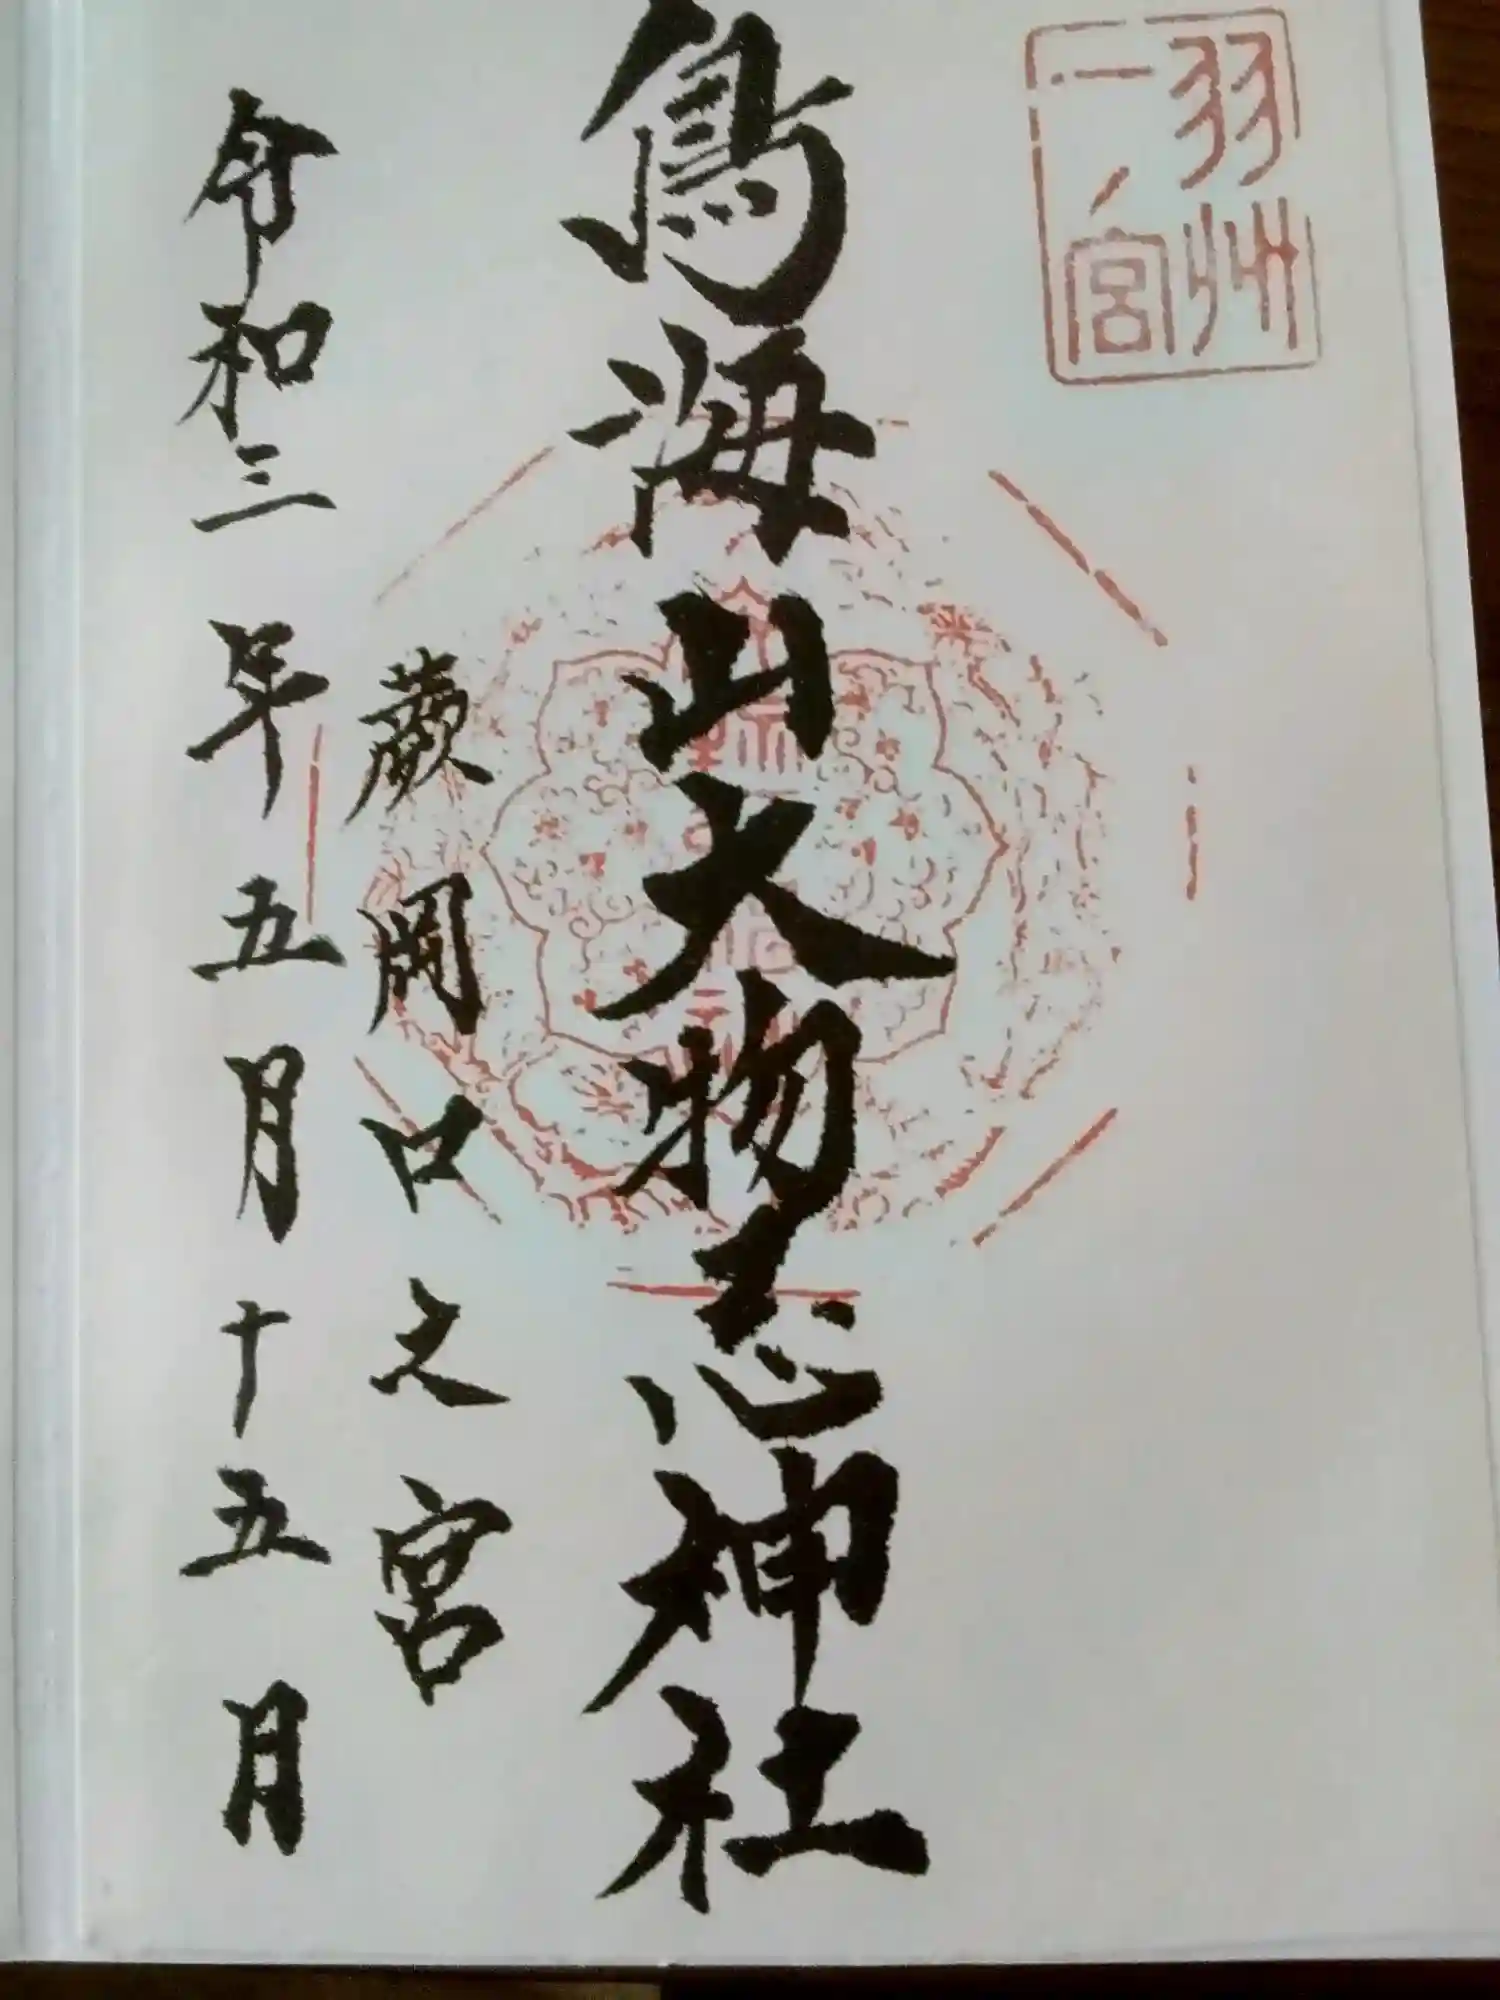 羽州
一ノ宮
鳥海山大物忌神社
蕨岡口之宮
令和三年五月十五月